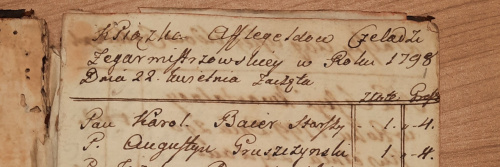 Książka Afflegeldow Czeladzi
Zegarmistrzowskiey w Roku 1798
Dnia 22. kwietnia zaczęta
Złote Grosz
Pan Karol Baier Starszy - 1. - 4.
P. Augustyn Gruszczynski - 1. - 4.